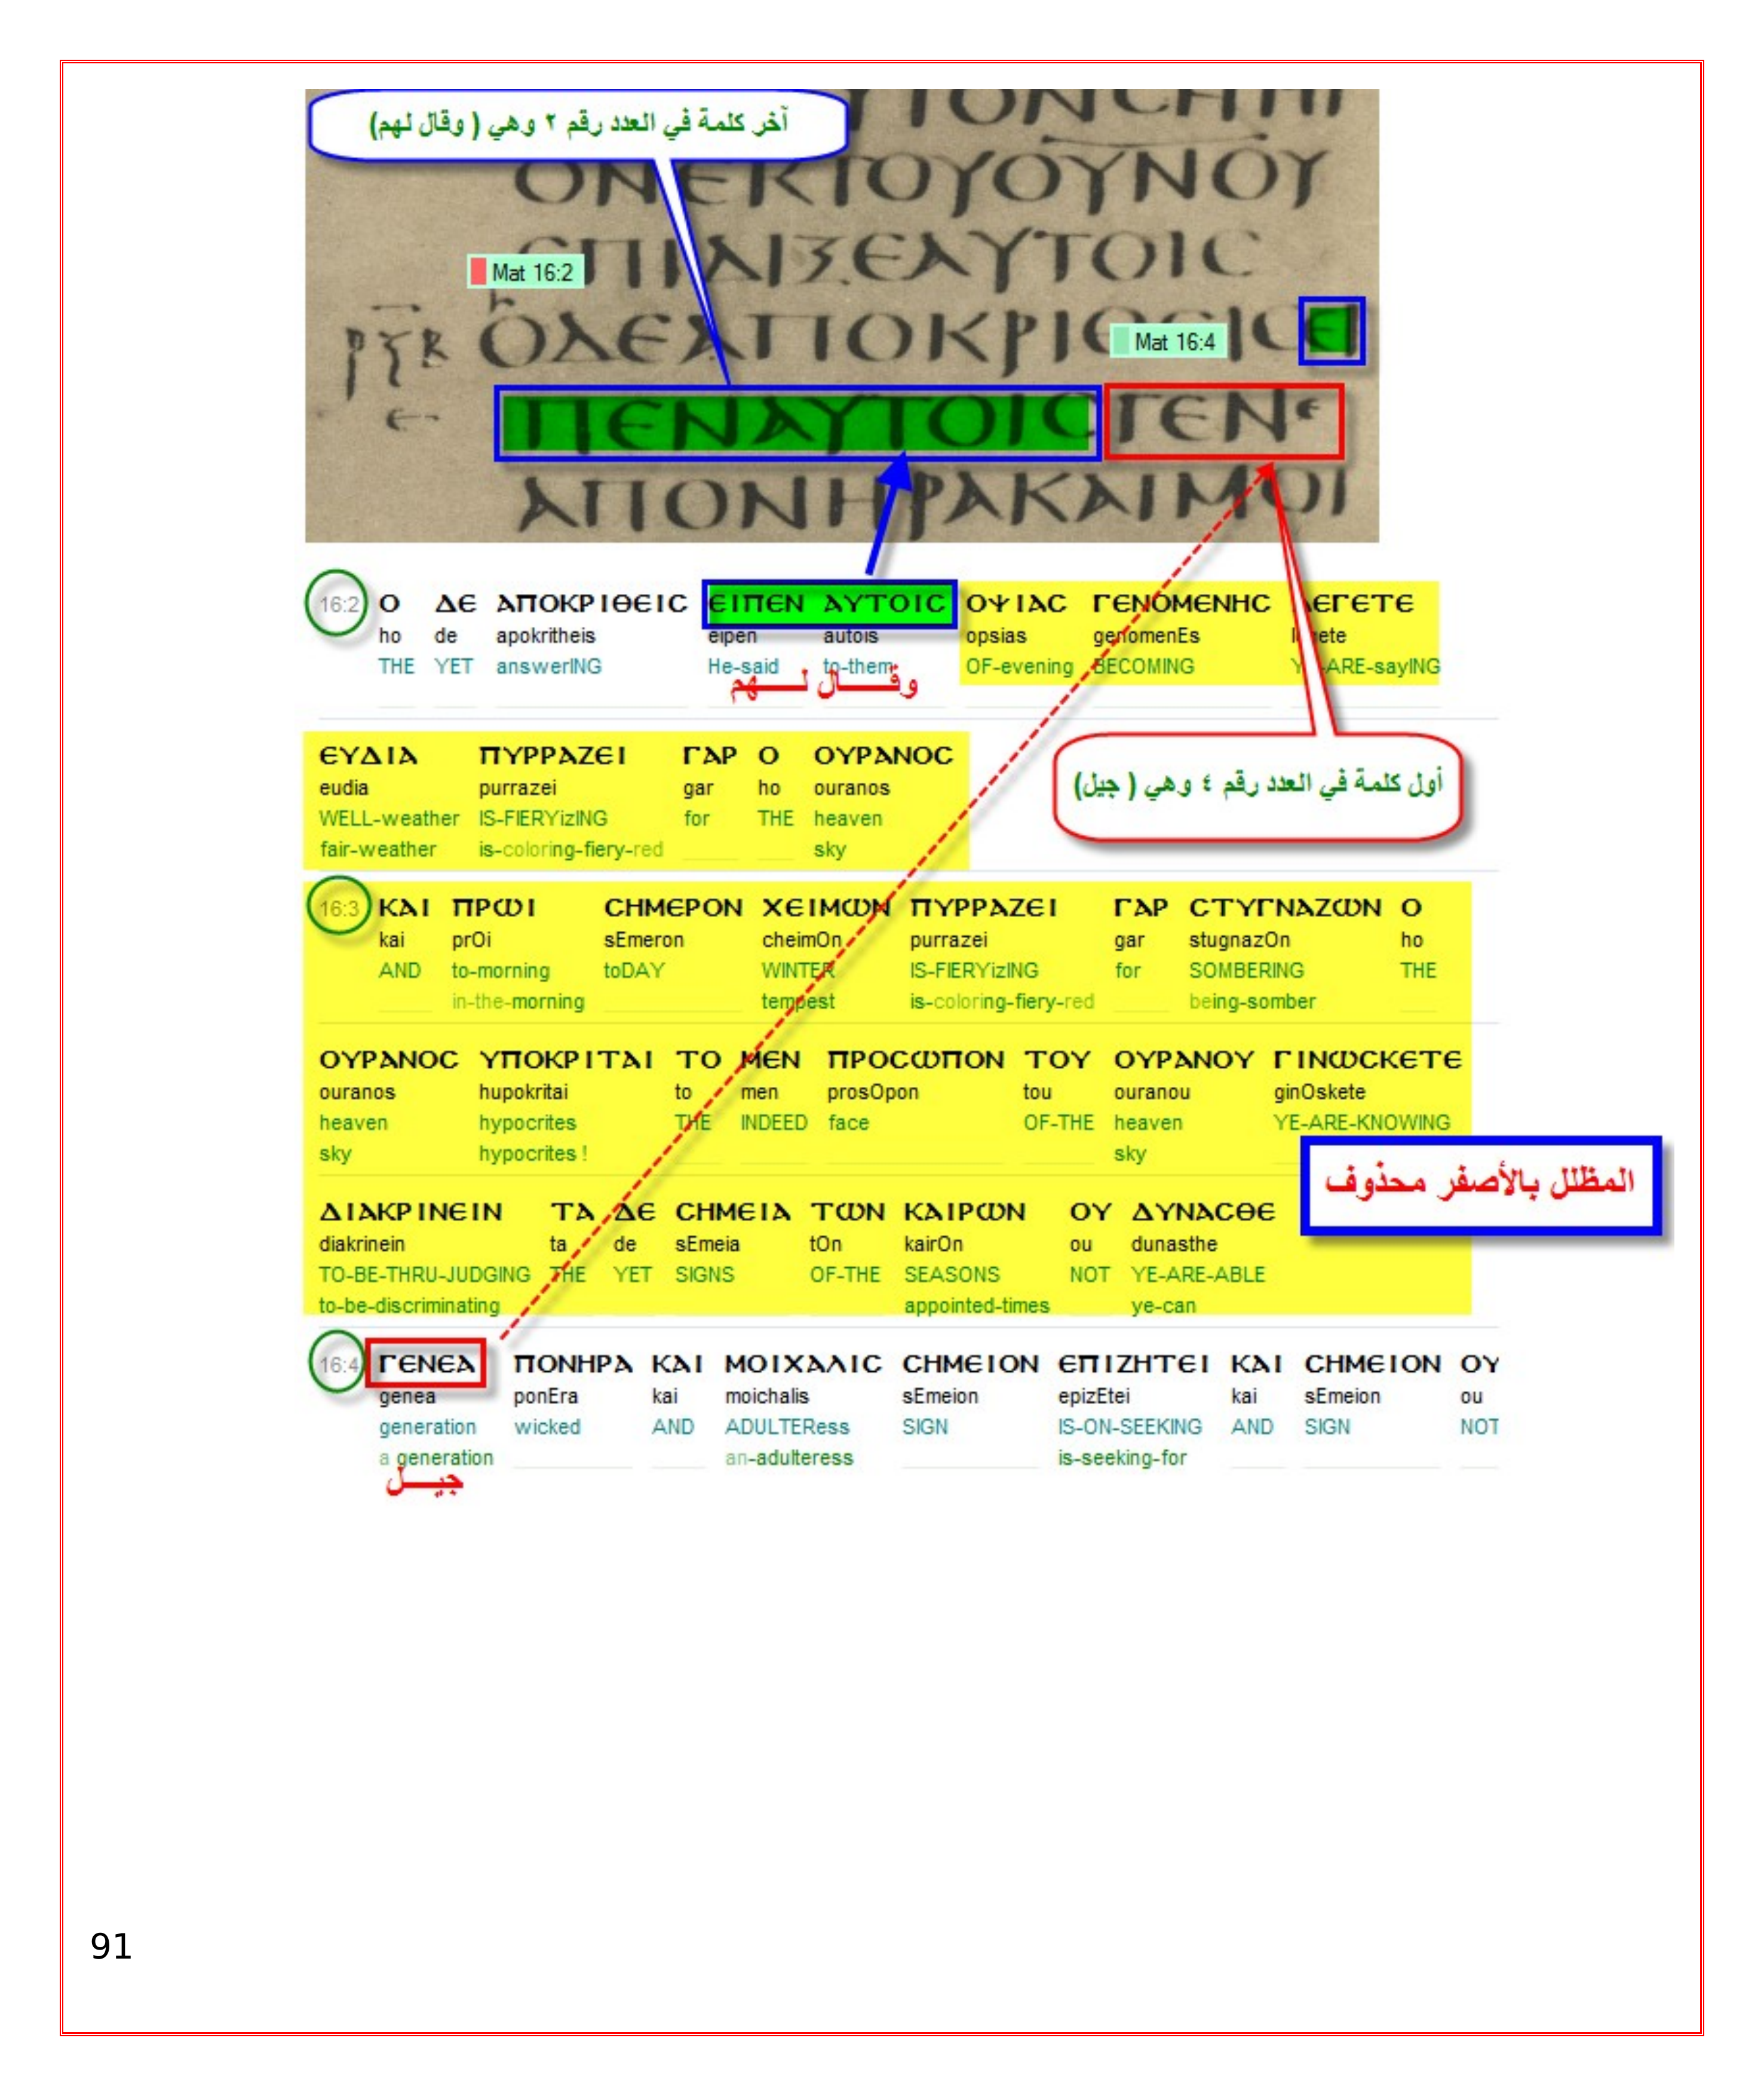 آخر كلمة في العدد رقم ٢ وهي ( وقال لهم)
ΟΝΕΚΤΟΥΟΥΝΟΥ
ΕΠΙΔΙΞΕΑΥΤΟΙC
Mat 16:2
ΟΔΕΑΠΟΚΡΙΘΕΙCΕΙ
Mat 16:4
ΠΕΝΑΥΤΟΙCΓΕΝΕ
ΑΠΟΝΗΡΑΚΑΙΜΟΙ
16:2 Ο ΔΕ ΑΠΟΚΡΙΘΕΙC ΕΙΠΕΝ ΑΥΤΟΙC ΟΨΙΑC ΓΕΝΟΜΕΝΗC ΛΕΓΕΤΕ
ho de apokritheis eipen autois opsias genomenEs legete
THE YET answerING He-said to-them OF-evening BECOMING YE-ARE-sayING
وقـــال لـــهم
ΕΥΔΙΑ ΠΥΡΡΑΖΕΙ ΓΑΡ Ο ΟΥΡΑΝΟC
eudia purrazei gar ho ouranos
WELL-weather IS-FIERYizING for THE heaven
fair-weather is-coloring-fiery-red sky
أول كلمة في العدد رقم ٤ وهي ( جيل)
16:3 ΚΑΙ ΠΡΩΙ CΗΜΕΡΟΝ ΧΕΙΜΩΝ ΠΥΡΡΑΖΕΙ ΓΑΡ CΤΥΓΝΑΖΩΝ Ο
kai prOi sEmeron cheimOn purrazei gar stugnazOn ho
AND to-morning toDAY WINTER IS-FIERYizING for SOMBERING THE
in-the-morning tempest is-coloring-fiery-red being-somber
ΟΥΡΑΝΟC ΥΠΟΚΡΙΤΑΙ ΤΟ ΜΕΝ ΠΡΟCΩΠΟΝ ΤΟΥ ΟΥΡΑΝΟΥ ΓΙΝΩCΚΕΤΕ
ouranos hupokritai to men prosOpon tou ouranou ginOskete
heaven hypocrites THE INDEED face OF-THE heaven YE-ARE-KNOWING
sky hypocrites ! sky
المظلل بالأصفر محذوف
ΔΙΑΚΡΙΝΕΙΝ ΤΑ ΔΕ CΗΜΕΙΑ ΤΩΝ ΚΑΙΡΩΝ ΟΥ ΔΥΝΑCΘΕ
diakrinein ta de sEmeia tOn kairOn ou dunasthe
TO-BE-THRU-JUDGING THE YET SIGNS OF-THE SEASONS NOT YE-ARE-ABLE
to-be-discriminating appointed-times ye-can
16:4 ΓΕΝΕΑ ΠΟΝΗΡΑ ΚΑΙ ΜΟΙΧΑΛΙC CΗΜΕΙΟΝ ΕΠΙΖΗΤΕΙ ΚΑΙ CΗΜΕΙΟΝ ΟΥ
genea ponEra kai moichalis sEmeion epizEtei kai sEmeion ou
generation wicked AND ADULTERess SIGN IS-ON-SEEKING AND SIGN NOT
a generation an-adulteress is-seeking-for
جيـــل
91